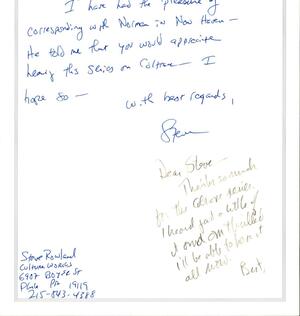 I have had the pleasure of
corresponding with Norman in New Haven —
He told me that you would appreciate
hearing this series on Coltrane — I
hope so —
with best regards,
Steve
Dear Steve —
Thanks so much
for the Coltrane series.
I heard just a little of
it and am thrilled
I'll be able to hear it
all now.
Best,
Steve Rowland
CultureWorks
6907 Boyer St
Phila PA 19119
215-843-4388